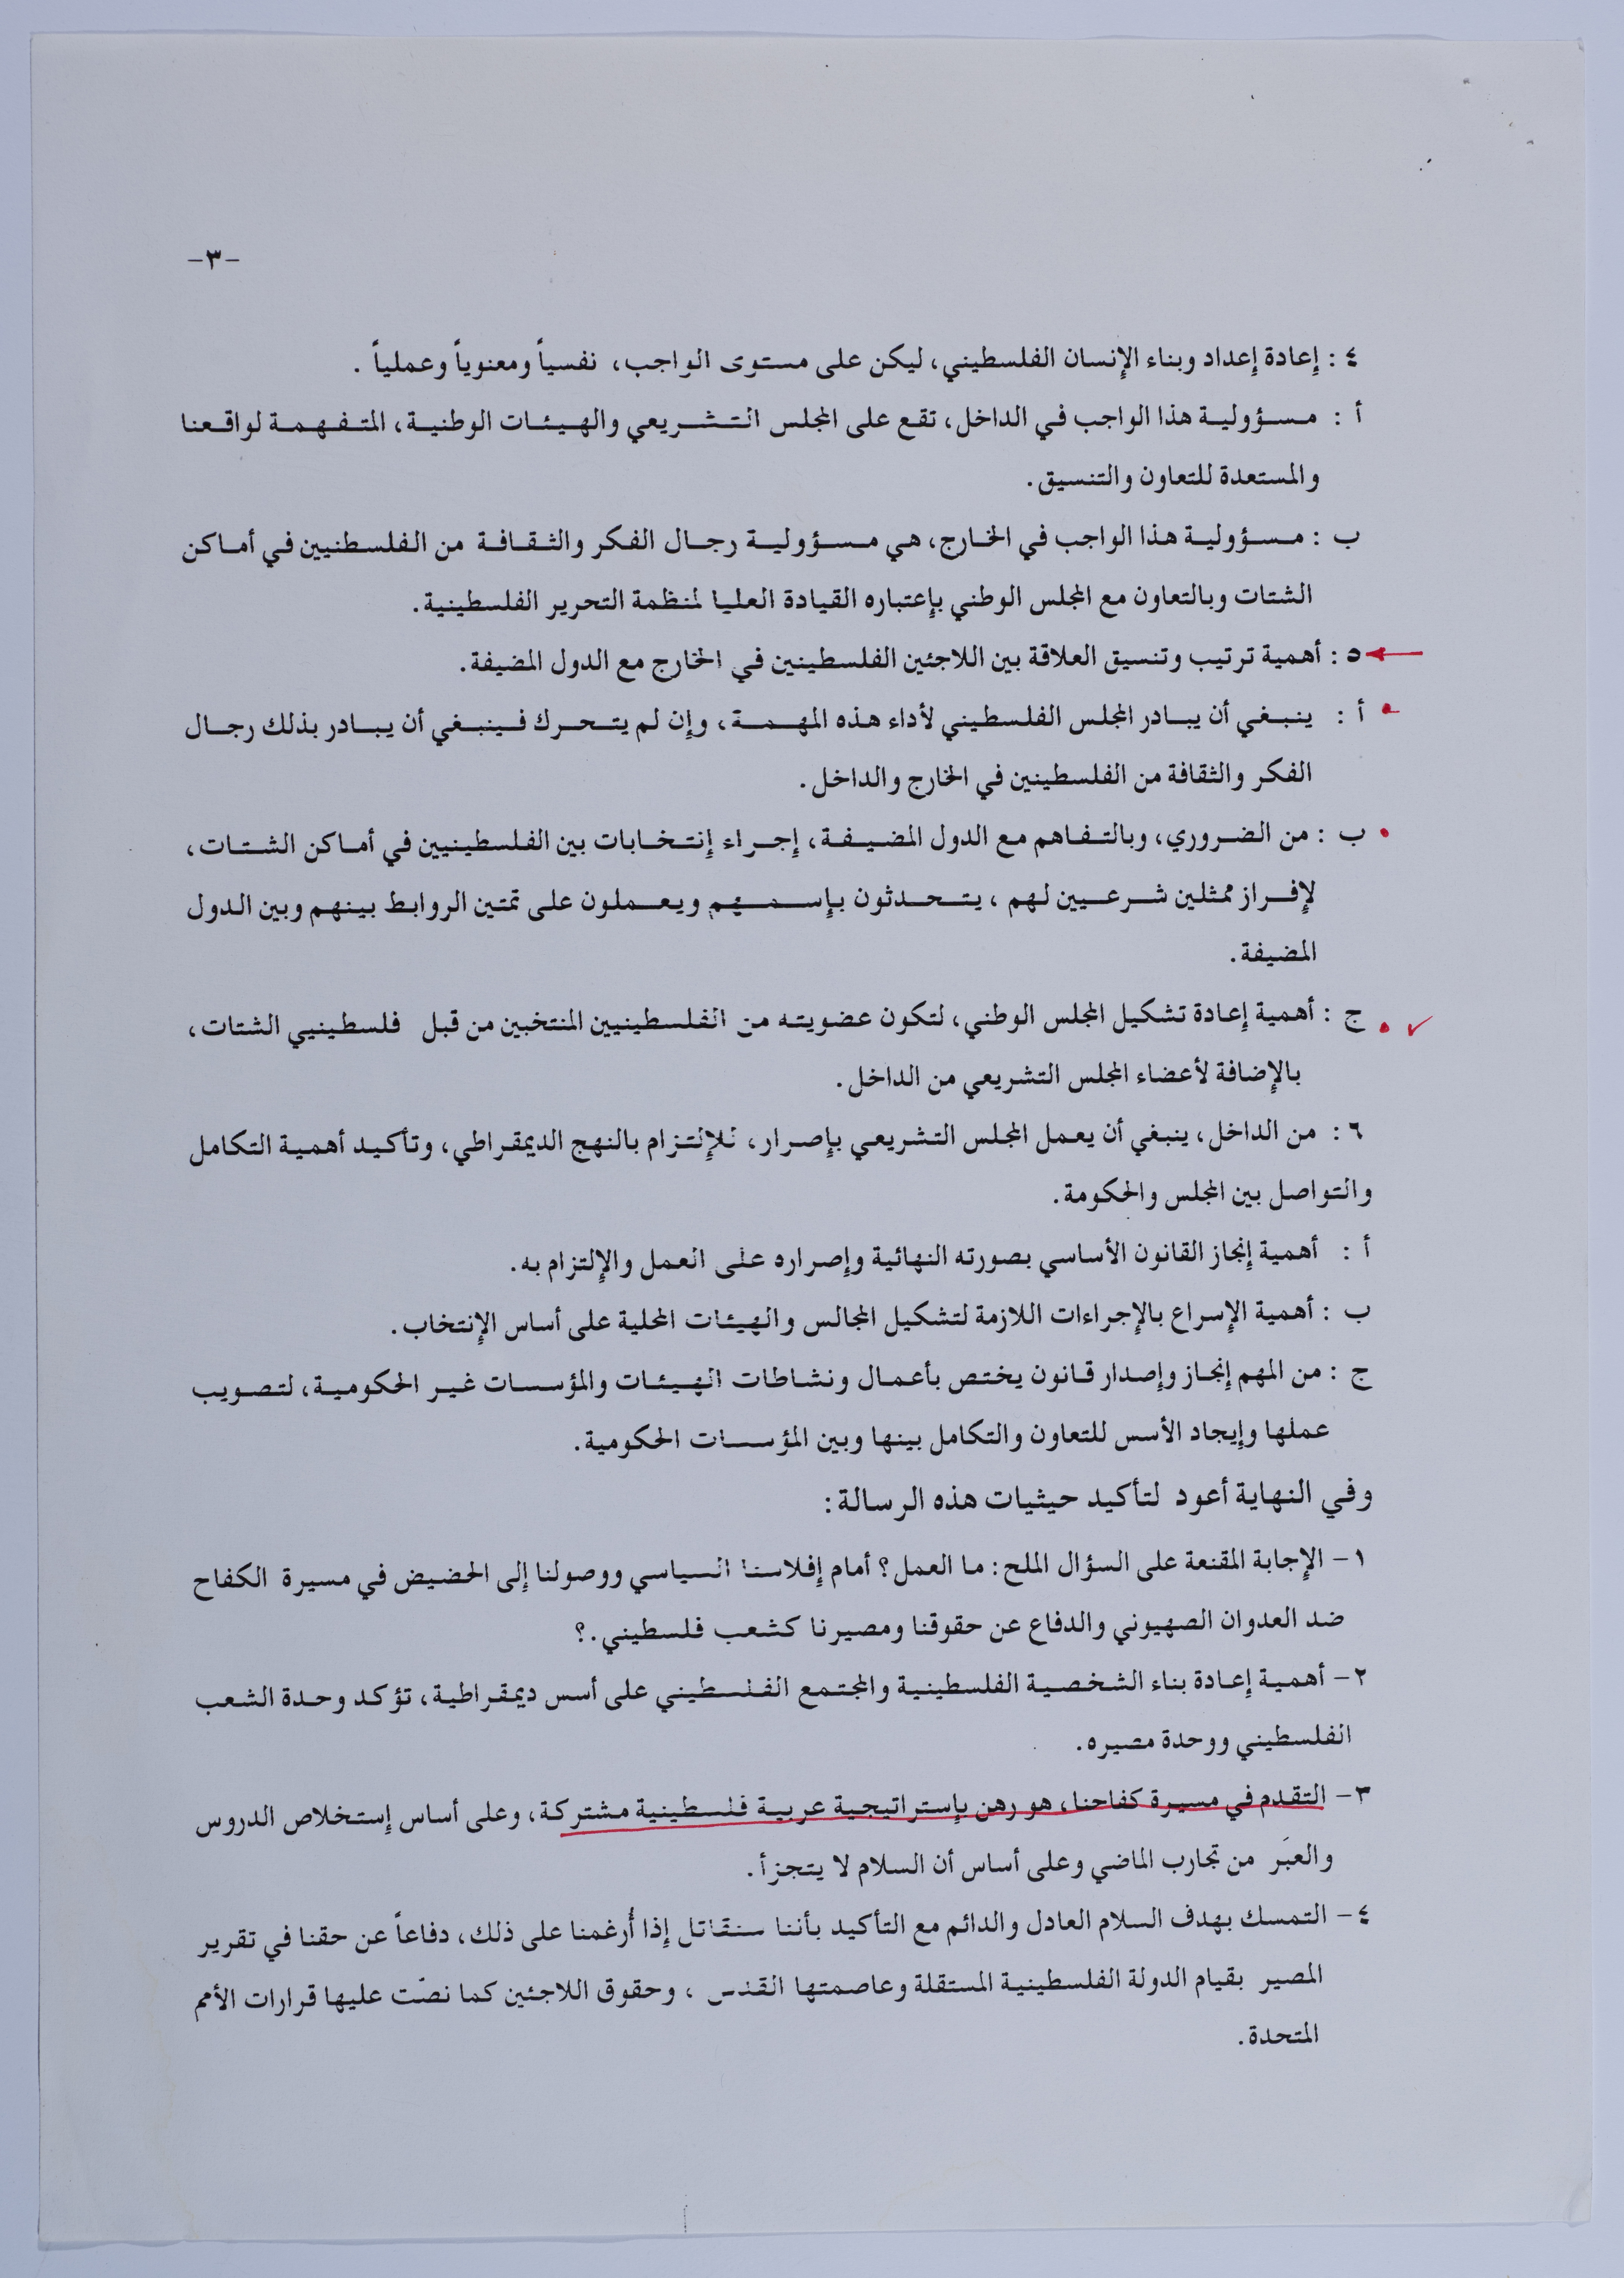 -٣-
٤ : إعادة إعداد وبناء الإنسان الفلسطيني، ليكن على مستوى الواجب، نفسياً ومعنوياً وعملياً .
أ : مسؤولية هذا الواجب في الداخل، تقع على المجلس التشريعي والهيئات الوطنية، المتفهمة لواقعنا
والمستعدة للتعاون والتنسيق.
ب : مسؤولية هذا الواجب في الخارج، هي مسؤولية رجال الفكر والثقافة من الفلسطنيين في أماكن
الشتات وبالتعاون مع المجلس الوطني بإعتباره القيادة العليا لمنظمة التحرير الفلسطينية.
٥ : أهمية ترتيب وتنسيق العلاقة بين اللاجئين الفلسطينين في الخارج مع الدول المضيفة.
أ : ينبغي أن يبادر المجلس الفلسطيني لأداء هذه المهمة، وإن لم يتحرك فينبغي أن يبادر بذلك رجال
الفكر والثقافة من الفلسطينين في الخارج والداخل.
ب : من الضروري، وبالتفاهم مع الدول المضيفة، إجراء إنتخابات بين الفلسطينيين في أماكن الشتات،
لإفراز ممثلين شرعيين لهم ، يتحدثون بإسمهم ويعملون على تمتين الروابط بينهم وبين الدول
المضيفة.
ج : أهمية إعادة تشكيل المجلس الوطني، لتكون عضويته من الفلسطينيين المنتخبين من قبل فلسطينيي الشتات،
بالإضافة لأعضاء المجلس التشريعي من الداخل.
٦ : من الداخل، ينبغي أن يعمل المجلس التشريعي بإصرار، للإلتزام بالنهج الديمقراطي، وتأكيد أهمية التكامل
والتواصل بين المجلس والحكومة.
أ : أهمية إنجاز القانون الأساسي بصورته النهائية وإصراره على العمل والإلتزام به.
ب : أهمية الإسراع بالإجراءات اللازمة لتشكيل المجالس والهيئات المحلية على أساس الإنتخاب.
ج : من المهم إنجاز وإصدار قانون يختص بأعمال ونشاطات الهيئات والمؤسسات غير الحكومية، لتصويب
عملها وإيجاد الأسس للتعاون والتكامل بينها وبين المؤسسات الحكومية.
وفي النهاية أعود لتأكيد حيثيات هذه الرسالة:
١- الإجابة المقنعة على السؤال الملح: ما العمل؟ أمام إفلاسنا السياسي ووصولنا إلى الحضيض في مسيرة الكفاح
ضد العدوان الصهيوني والدفاع عن حقوقنا ومصيرنا كشعب فلسطيني.؟
٢- أهمية إعادة بناء الشخصية الفلسطينية والمجتمع الفلسطيني على أسس ديمقراطية، تؤكد وحدة الشعب
الفلسطيني ووحدة مصيره.
٣- التقدم في مسيرة كفاحنا، هو رهن بإستراتيجية عربية فلسطينية مشتركة، وعلى أساس إستخلاص الدروس
والعبَر من تجارب الماضي وعلى أساس أن السلام لا يتجزأ.
٤- التمسك بهدف السلام العادل والدائم مع التأكيد بأننا سنقاتل إذا أُرغمنا على ذلك، دفاعاً عن حقنا في تقرير
المصير بقيام الدولة الفلسطينية المستقلة وعاصمتها القدس ، وحقوق اللاجئين كما نصّت عليها قرارات الأمم
المتحدة.